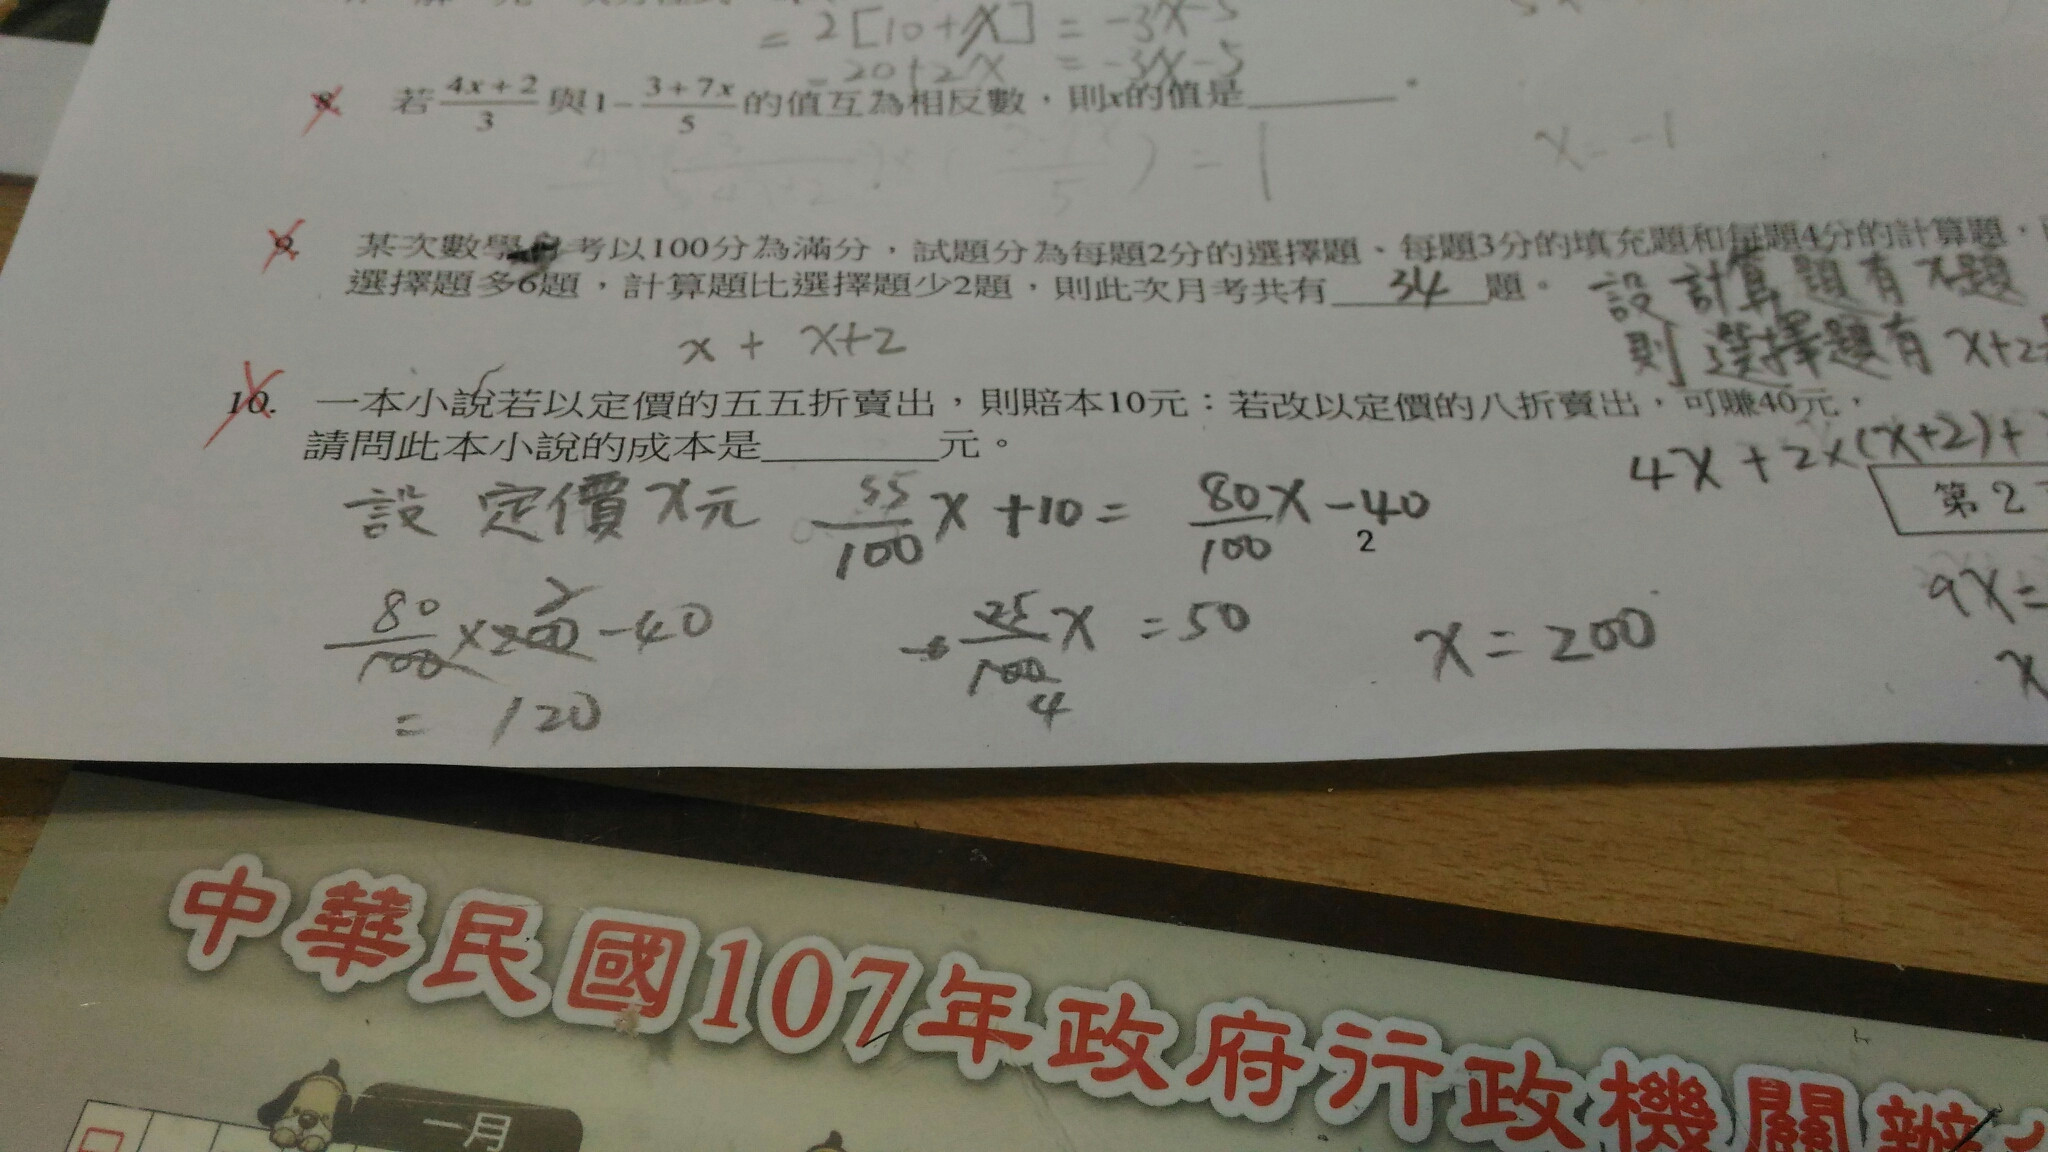 = 2[10+x] = -3x-5
= 20+2x = -3x-5
8. 若 (4x+2)/3 與 1-(3+7x)/5 的值互為相反數，則x的值是________。
) = 1
x = -1
9. 某次數學考以100分為滿分，試題分為每題2分的選擇題、每題3分的填充題和每題4分的計算題，
選擇題多6題，計算題比選擇題少2題，則此次月考共有 34 題。
設 計算題有x題
則 選擇題有 x+2
x + x+2
10. 一本小說若以定價的五五折賣出，則賠本10元：若改以定價的八折賣出，可賺40元，
請問此本小說的成本是________元。
4x + 2×(x+2)+
第 2
設 定價 x元 55/100 x +10 = 80/100 x -40
2
9x=
80/100 ×200 -40
2
25/100 x = 50
4
x = 200
x
= 120
中華民國107年政府行政機關辦
一月